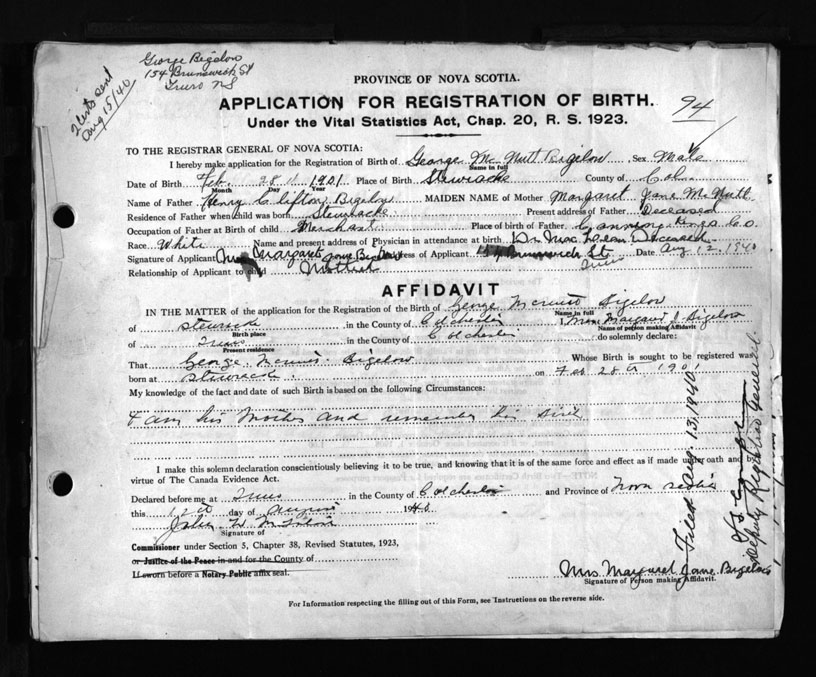 George Bigelow
154 Brunswick St
Truro NS
2 certs sent
Aug 15/40
PROVINCE OF NOVA SCOTIA.
APPLICATION FOR REGISTRATION OF BIRTH.
94
Under the Vital Statistics Act, Chap. 20, R. S. 1923.
TO THE REGISTRAR GENERAL OF NOVA SCOTIA:
I hereby make application for the Registration of Birth of George Mc Nutt Bigelow Sex Male
Name in full
Date of Birth Feb. 28th 1901 Place of Birth Stewiacke County of Col.
Month Day Year
Name of Father Henry Clifton Bigelow MAIDEN NAME of Mother Margaret Jane McNutt
Residence of Father when child was born Stewiacke Present address of Father Deceased
Occupation of Father at Birth of child Merchant Place of birth of Father Canning Kings Co.
Race White Name and present address of Physician in attendance at birth Dr. MacLean Deceased
Signature of Applicant Mrs Margaret Jane Bigelow Address of Applicant 154 Brunswick St. Truro Date Aug 12, 1940
Relationship of Applicant to child Mother
AFFIDAVIT
IN THE MATTER of the application for the Registration of the Birth of George McNutt Bigelow
Name in full
of Stewiacke in the County of Colchester I, Mrs Margaret J. Bigelow
Birth place Name of person making Affidavit
of Truro in the County of Colchester do solemnly declare:
Present residence
That George McNutt Bigelow Whose Birth is sought to be registered was
born at Stewiacke on Feb 28th 1901
My knowledge of the fact and date of such Birth is based on the following Circumstances:
I am his Mother and remember his birth
I make this solemn declaration conscientiously believing it to be true, and knowing that it is of the same force and effect as if made under oath and by
virtue of The Canada Evidence Act.
Declared before me at Truro in the County of Colchester and Province of Nova Scotia
this 12th day of August 1940
Signature of
Commissioner under Section 5, Chapter 38, Revised Statutes, 1923,
or Justice of the Peace in and for the County of
If sworn before a Notary Public affix seal.
Mrs Margaret Jane Bigelow
Signature of Person making Affidavit.
Filed Aug. 13, 1940
Deputy Registrar General
For Information respecting the filling out of this Form, see Instructions on the reverse side.